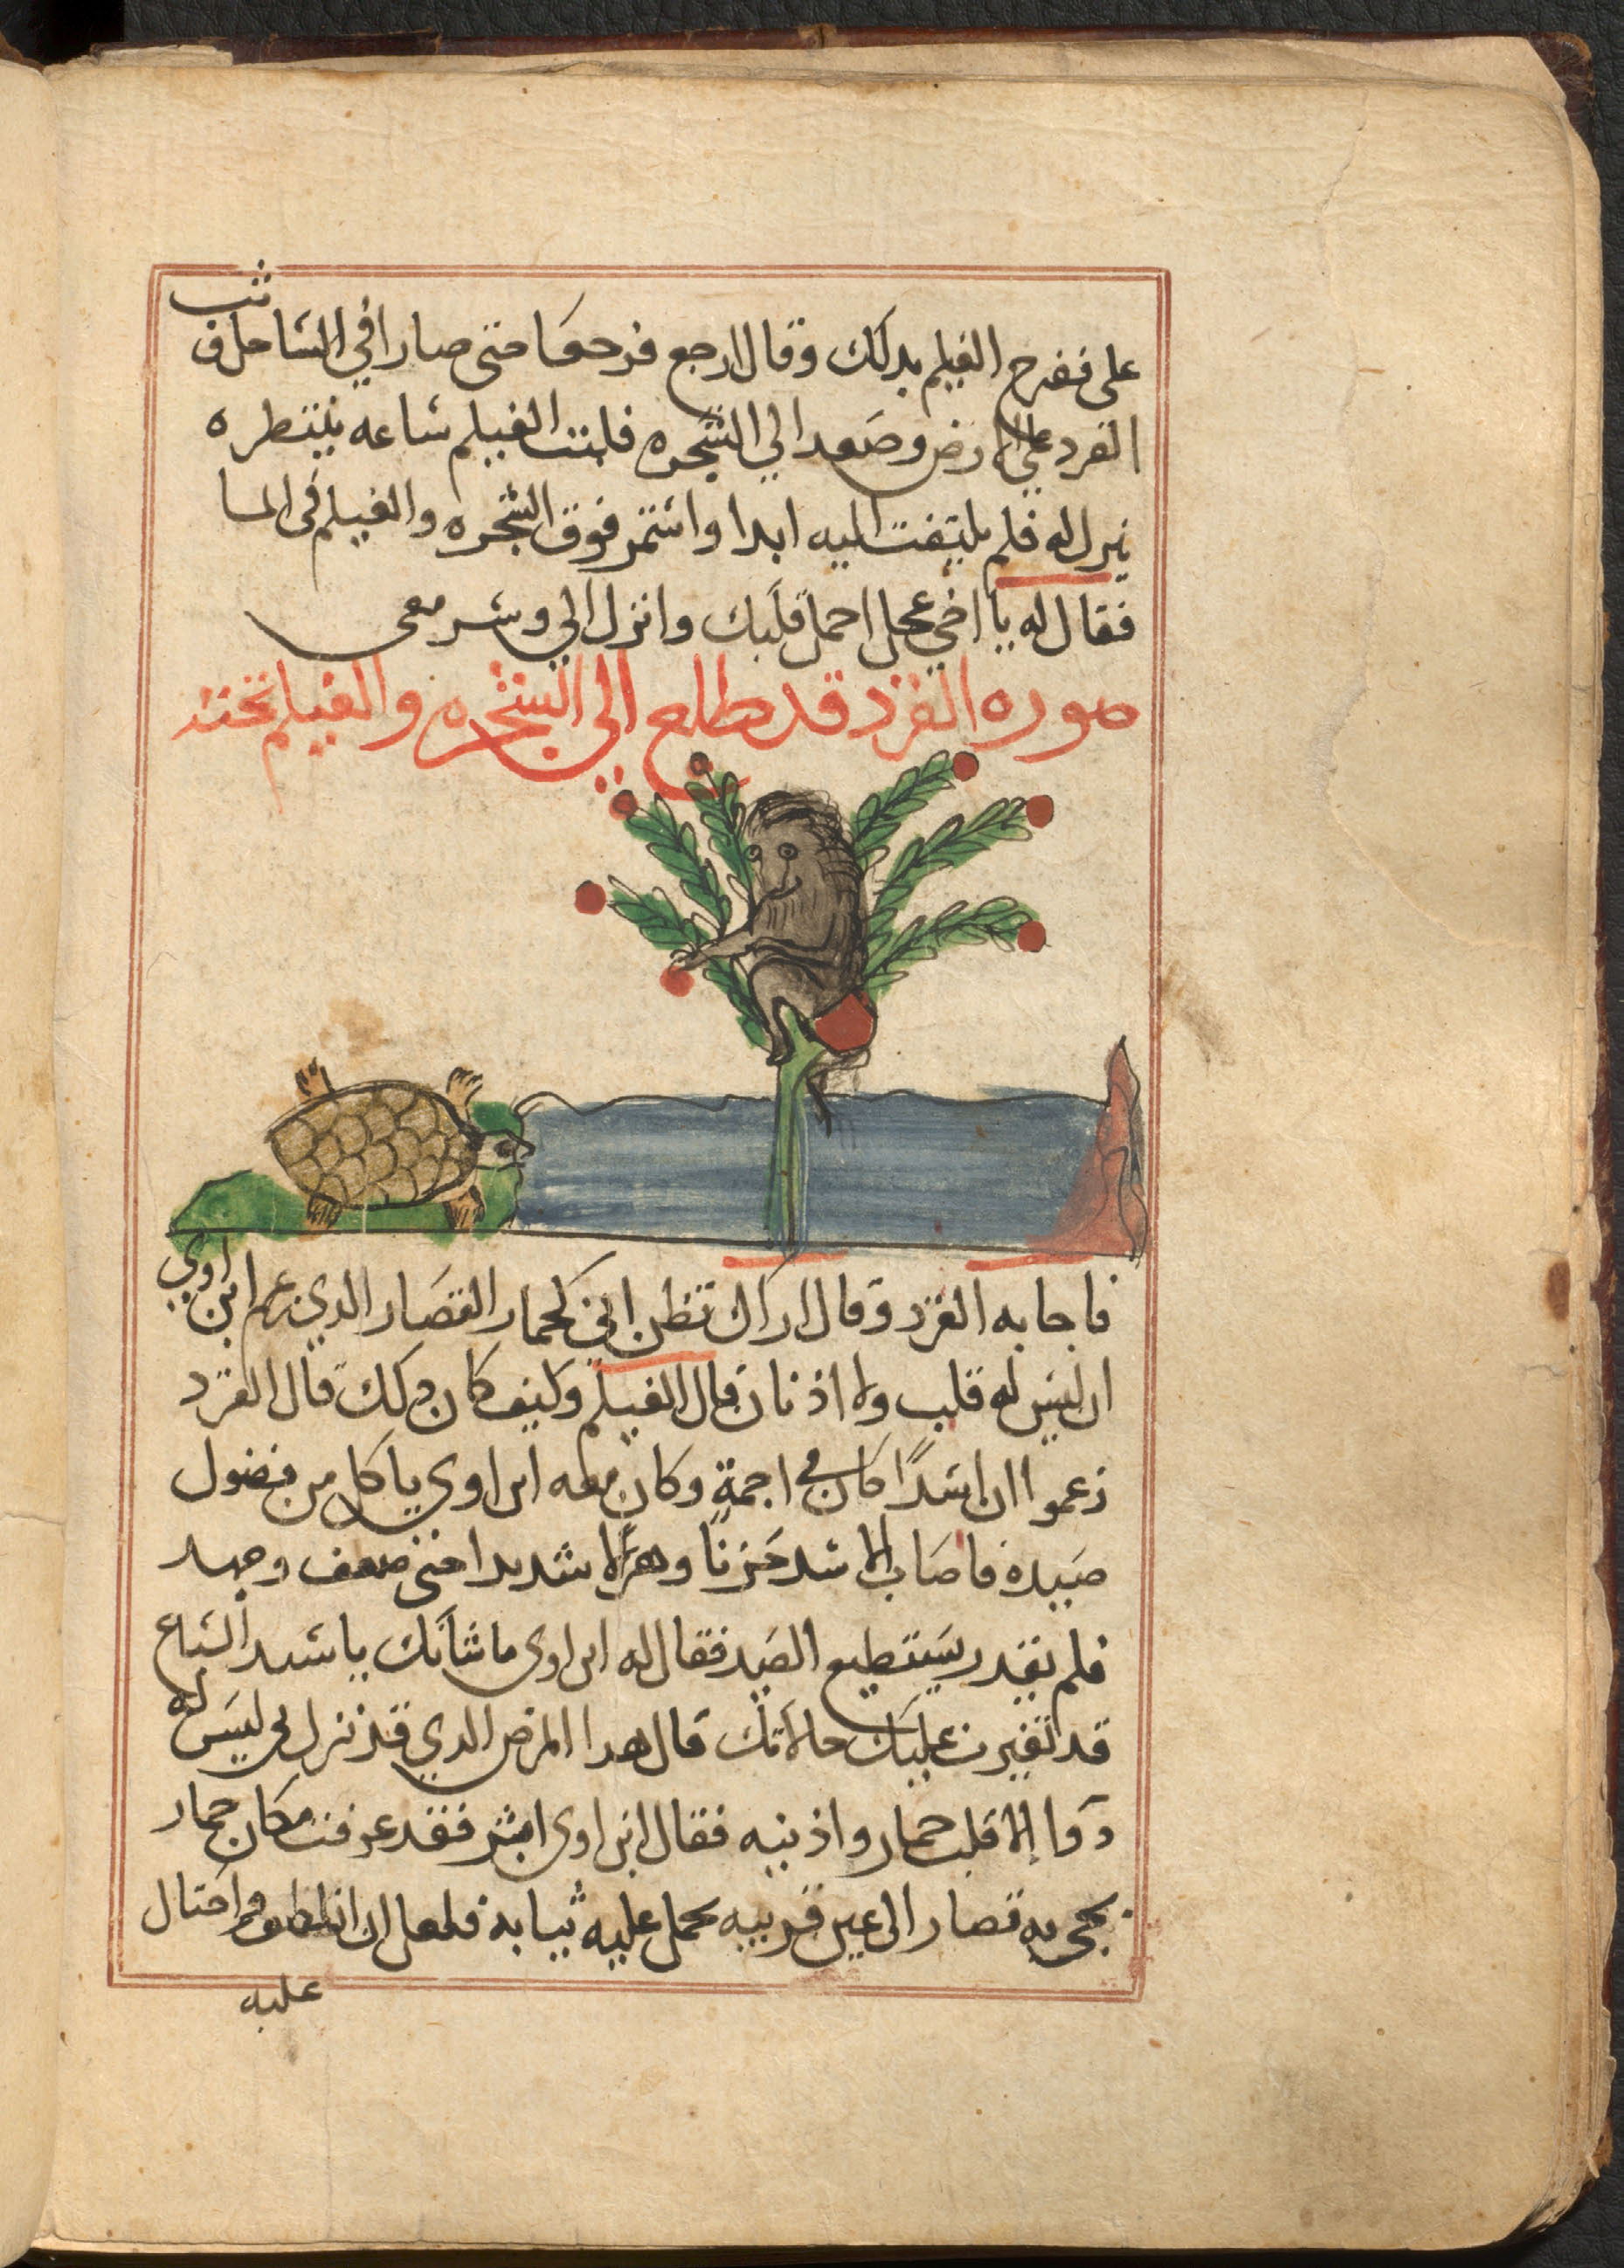 على ففرح الغيلم بدلك وقال ارجع فرجعا حتى صارا في الساحل فوثب
القرد على الارض وصعد الي الشجره فلبث الغيلم ساعه ينتطره
ينرل له فلم يلتفت اليه ابدا واستمر فوق الشجره والغيلم في الما
فقال له يا اخي عجل احمل قلبك وانزل الي وسر معى
صوره القرد قد طلع الي الشجره والغيلم تحته
فاجابه القرد وقال اراك تظن اني كحمار القصار الدي زعم ابن اوي
ان ليس له قلب ولا اذنان قال الغيلم وكيف كان دلك قال القرد
زعموا ان اسدًا كان في اجمةٍ وكان معه ابن اوي ياكل من فضول
صيده فاصاب الاسد حَزنًا وهزالا شديدا حتى ضعف وجهد
فلم يقدر يستطيع الصيد فقال له ابن اوى ما شأنك يا سيد السباع
قد تغيرت عليك حالاتك قال هدا المرض الدي قد نزل بي ليس له
دوا إلا قلب حمار واذنيه فقال ابن اوى ابشر فقد عرفت مكان حمار
يجي به قصار الى عين قريبه يحمل عليه ثيابه فلعل ان انطلق واحتال
عليه